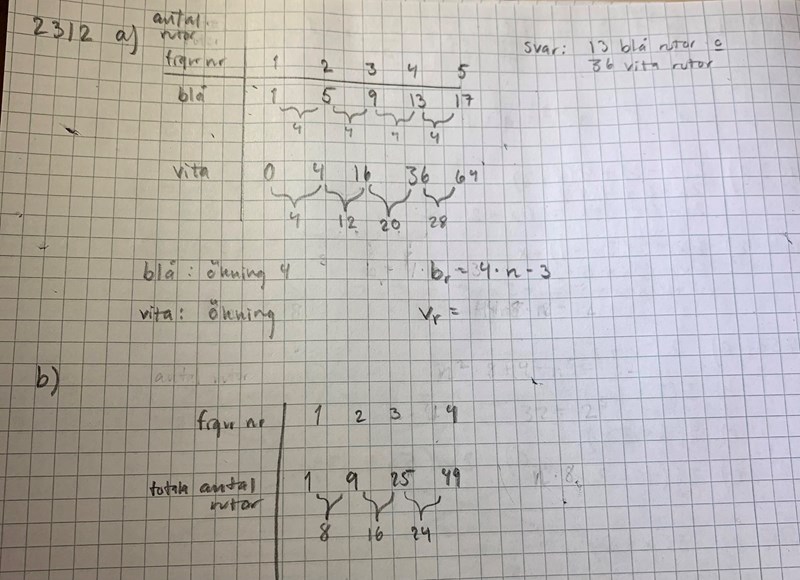 2312 a) antal rutor
svar: 13 blå rutor o
36 vita rutor
figur nr 1 2 3 4 5
blå 1 5 9 13 17
4 4 4 4
vita 0 4 16 36 64
4 12 20 28
blå: ökning 4 br = 4·n-3
vita: ökning vr =
b)
figur nr 1 2 3 4
totala antal rutor 1 9 25 49
8 16 24